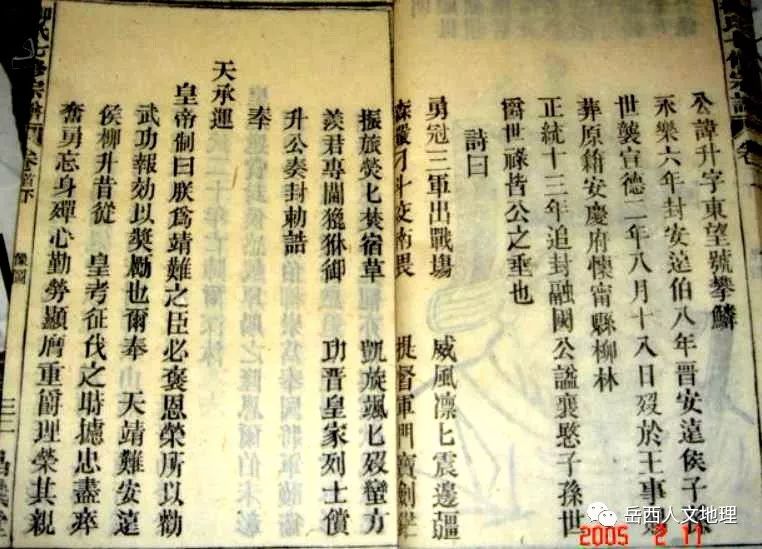 公諱升字東望號攀鱗
永樂六年封安遠伯八年晉安遠侯子孫
世襲宣德二年八月十八日歿於王事
葬原籍安慶府懷甯縣柳林
正統十三年追封融國公諡襄愍子孫世
爵世祿皆公之垂也
詩曰
勇冠三軍出戰場 威風凛匕震邊疆
森嚴刁斗交南畏 提督軍門寶劍
振旅熒匕焚宿草 凱旋颯匕歿蠻方
羨君專閫貔貅御 功晋皇家列士償
升公奏封勅誥
奉
天承運
皇帝制曰朕爲靖難之臣必褒恩榮所以勸
武功報効以奬勵也爾奉 天靖難安遠
侯柳升昔從 皇考征伐之時攄忠盡瘁
奮勇忘身殫心勤勞顯膺重爵理榮其親
柳氏七修宗譜 卷首下 像圖
岳西人文地理
2005 2 17